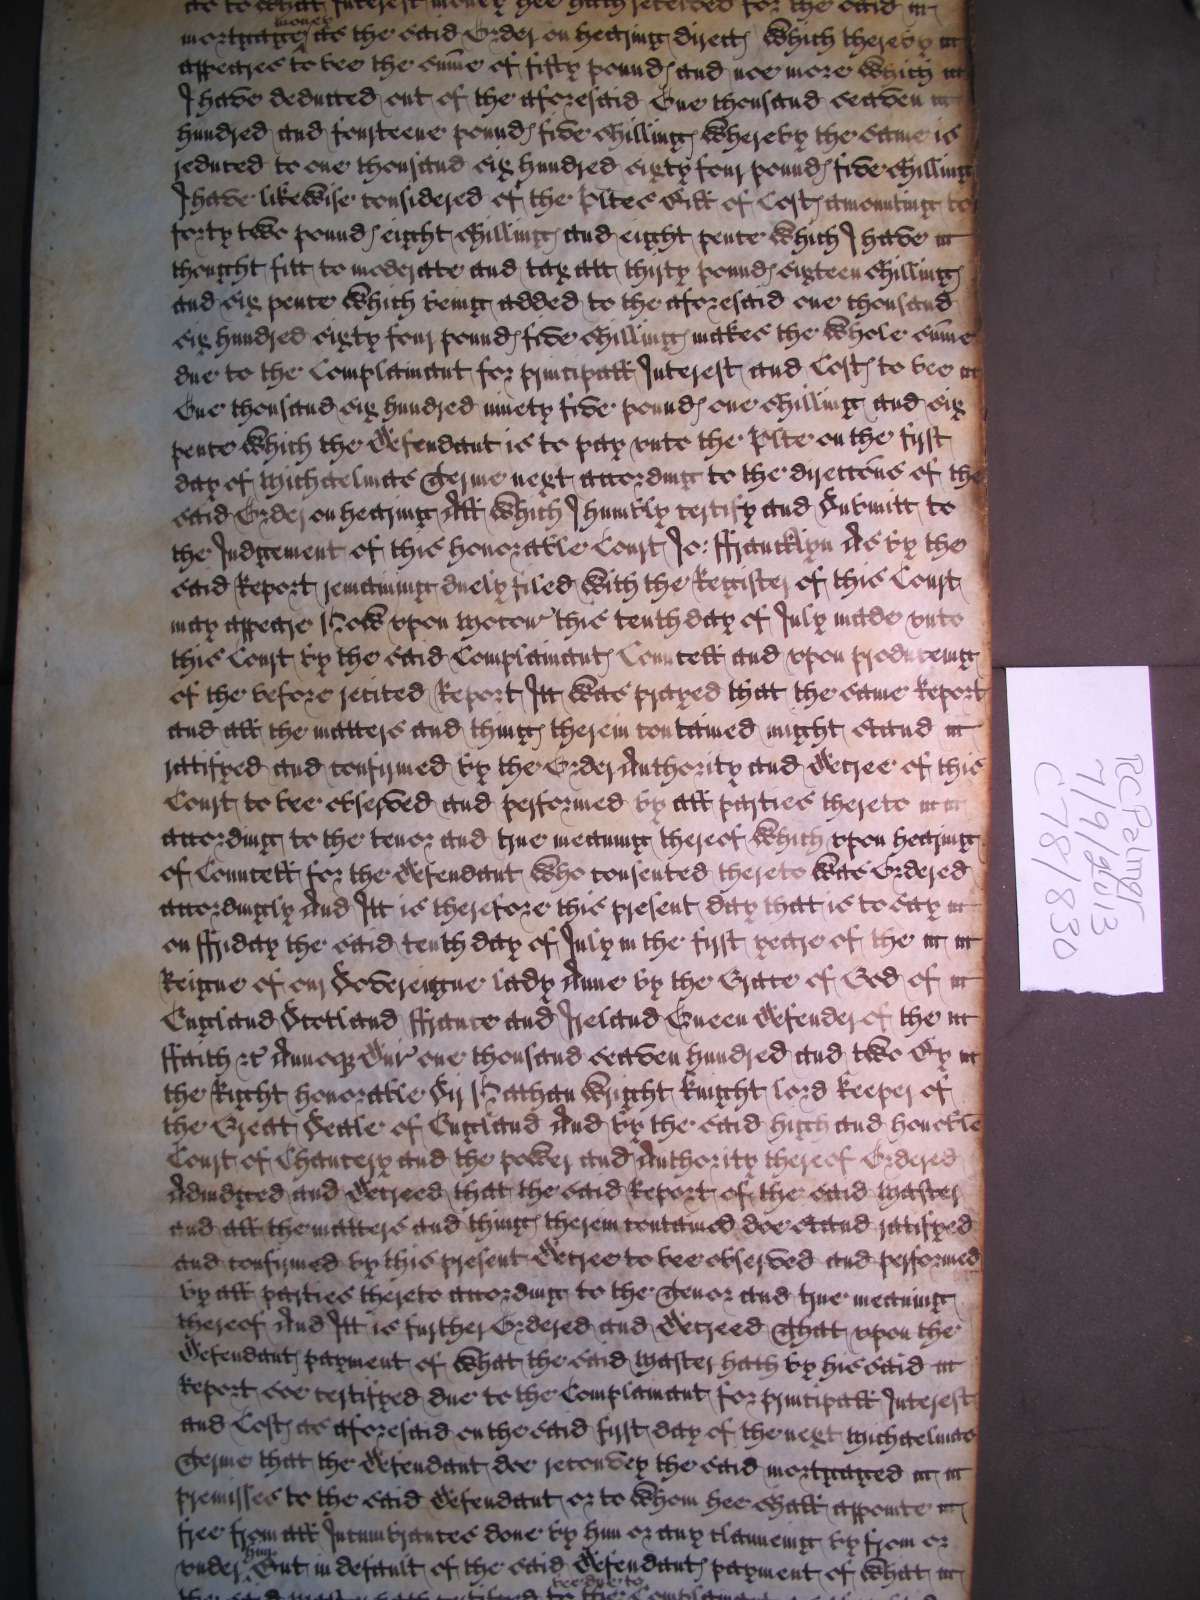 as to what Interest money hee hath received for the said
money
mortgages as the said Order on hearing directs Which thereby
appeares to bee the sume of fifty pounds and noe more Which
I have deducted out of the aforesaid One thousand seaven
hundred and fourteene pounds five shillings Whereby the same is
reduced to one thousand six hundred sixty four pounds five shillings
I have likeWise considered of the Pltes Bill of Costs amounting to
forty two pounds eight shillings and eight pence Which I have
thought fitt to moderate and tax att thirty pounds sixteen shillings
and six pence Which being added to the aforesaid one thousand
six hundred sixty four pounds five shillings makes the Whole sume
due to the Complainant for principall Interest and Costs to bee
One thousand six hundred ninety five pounds one shilling and six
pence Which the Defendant is to pay unto the Plte on the first
day of Michaelmas Terme next according to the direccons of the
said Order on hearing All Which I humbly certify and Submitt to
the Judgement of this honorable Court Jo: ffrancklyn As by the
said Report remaining duely filed With the Register of this Court
may appeare Now upon mocon this tenth day of July made unto
this Court by the said Complainants Councell and upon produceing
of the before recited Report Itt Was prayed that the same Report
and all the matters and things therein contained might stand
ratifyed and confirmed by the Order Authority and Decree of this
Court to bee observed and performed by all parties thereto
according to the tenor and true meaning thereof Which upon hearing
of Councell for the Defendant Who consented thereto Was Ordered
accordingly And Itt is therefore this present day that is to say
on ffriday the said tenth day of July in the first yeare of the
Reigne of our Sovereigne lady Anne by the Grace of God of
England Scotland ffrance and Ireland Queen Defender of the
ffaith &c Annoq Dni one thousand seaven hundred and two By
the Right honorable Sir Nathan Wright Knight lord Keeper of
the Great Seale of England And by the said high and honoble
Court of Chancery and the power and Authority thereof Ordered
Adiudged and Decreed that the said Report of the said Master
and all the matters and things therein contained doe stand ratifyed
and confirmed by this present Decree to bee observed and performed
by all parties thereto according to the Tenor and true meaning
thereof And Itt is further Ordered and Decreed That upon the
Defendants payment of What the said Master hath by his said
Report soe certifyed due to the Complainant for principall Interest
and Costs as aforesaid on the said first day of the next Michaelmas
Terme that the Defendant doe reconvey the said mortgaged
premisses to the said Defendant or to Whom hee shall appointe
free from all Incumbrances done by him or any claimeing by from or
him
under But in default of the said Defendants payment of What
bee due to
the said Master hath certifyed to the Complainant
RCPalmer
7/9/2013
C78/1830